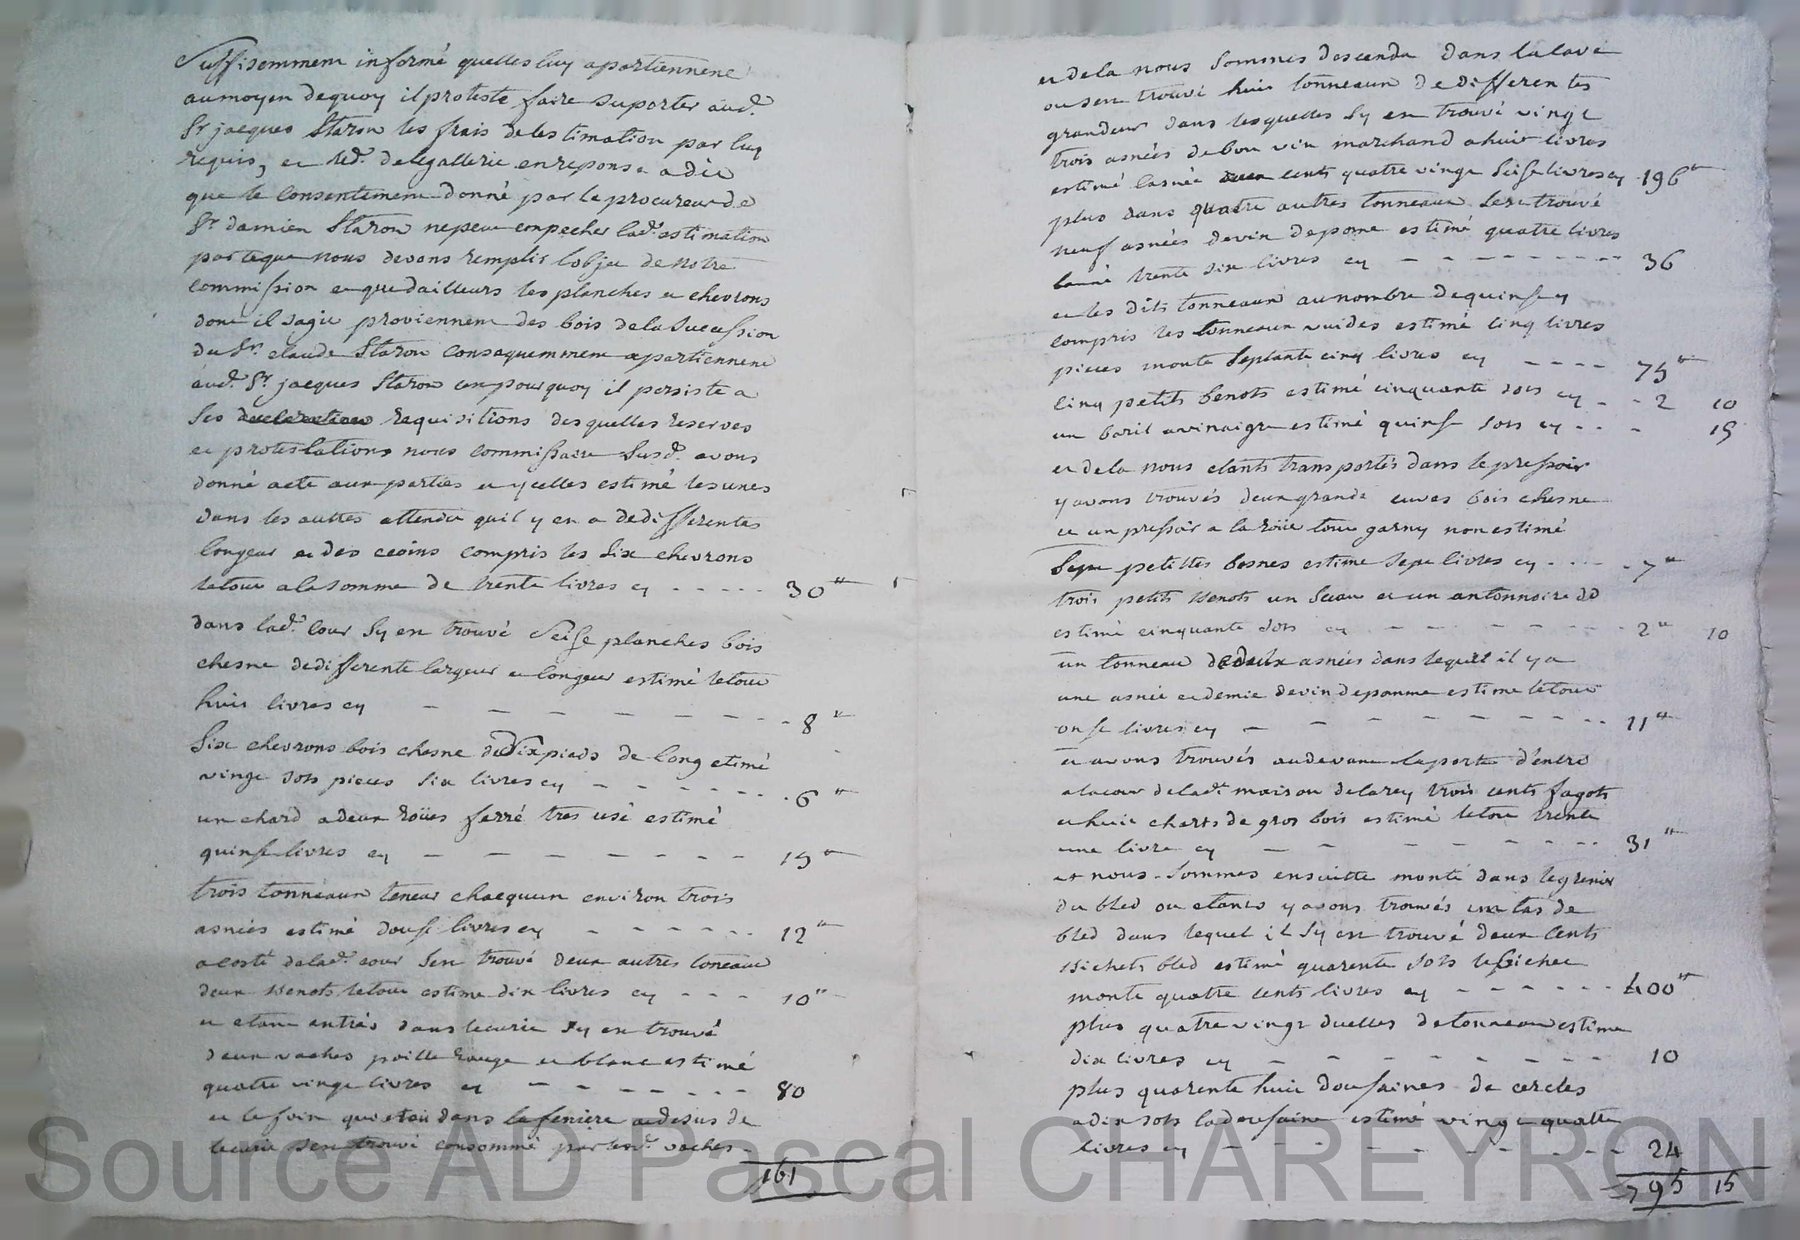 Suffisemment informé quelles luy apartiennene
au moyen dequoy il proteste faire suporter aud.
Sr jacques Staron les frais delestimation par luy
requis, et Me. delegallerie en reponse a dit
que le consentement donné par le procureur de
Sr damien Staron nepeut empecher lad. estimation
parceque nous devons remplir lobjet de notre
commission et que dailleurs les planches et chevrons
dont il sagit proviennent des bois de la succession
du Sr. claude Staron consequemment apartiennent
aud. Sr. jacques Staron cenpourquoy il persiste a
ses requisitions desquelles reserves
et protestations nous commissaire susd. avons
donné acte aux parties et ycelles estimé les unes
dans les auttres attendu quil y en a dedifferentes
longeur et des coins compris les six chevrons
letout a la somme de trente livres cy - - - - - 30tt
dans lad. cour Sy en trouvé Seise planches bois
chesne dedifferente largeur et longeur estimé letout
huit livres cy - - - - - - - - 8tt
Six chevrons bois chesne de dix pieds de long etimé
vingt sols pieces six livres cy - - - - - - 6tt
un chard a deux roües ferré tres usé estimé
quinse livres cy - - - - - - - 15tt
trois tonneaux teneur chacquun environ trois
asnées estimé douse livres cy - - - - - - 12tt
a costé delad. cour sen trouvé deux autres toneaux
deux benots letout estimé dix livres cy - - - 10tt
et etant entrés dans lecurie sy en trouvé
deux vaches poille rouge et blanc estimé
quatre vingt livres cy - - - - - - 80
et le foin quietoit dans lafeniere audesus de
lecurie sen trouvé consommé par lesd. vaches
161
et dela nous sommes descendu dans la cave
ou sen trouvé huit tonneaux de differentes
grandeur dans lesquelles sy en trouvé vingt
trois asnées debon vin marchand a huit livres
estimé lasnée cents quatre vingt seise livres cy 196tt
plus dans quatre autres tonneaux sen trouvé
neuf asnées devin depome estimé quatre livres
lanné trente six livres cy - - - - - - - - 36
et les dits tonneaux au nombre dequinse y
compris les tonneaux vuides estimé cinq livres
pieces monte septante cinq livres cy - - - - 75tt
cinq petits benots estimé cinquante sols cy - - 2 10
un baril avinaigre estimé quinse sols cy - - - 15
et dela nous etants transportés dans le pressoir
y avons trouvés deux grande cuves bois chesne
et un pressoir a la roüe tout garny non estimé
Sept petittes besnes estimé sept livres cy - - - - 7tt
trois petits benots un seau et un antonnoire
estimé cinquante sols cy - - - - - - - - 2tt 10
un tonneau de deux asnées dans lequel il y a
une asnée et demie devin depomme estimé letout
onse livres cy - - - - - - - - - 11tt
et avons trouvés au devant laporte d'entré
a lacour delad. maison delarey trois cents fagots
et huit charts de gros bois estimé letout trente
une livre cy - - - - - - - - 31tt
et nous sommes ensuitte monté dans legrenier
du bled ou etants y avons trouvés un tas de
bled dans lequel il sy en trouvé deux cents
bichets bled estimé quarente sols lebichet
monte quatre cents livres cy - - - - - - 400tt
plus quatre vingt duelles detonneaux estimé
dix livres cy - - - - - - - - - 10
plus quarente huit dousaines de cercles
a dix sols ladousaine estimé vingt quattre
livres cy - - - - - - - - - 24
795 15
Source AD Pascal CHAREYRON